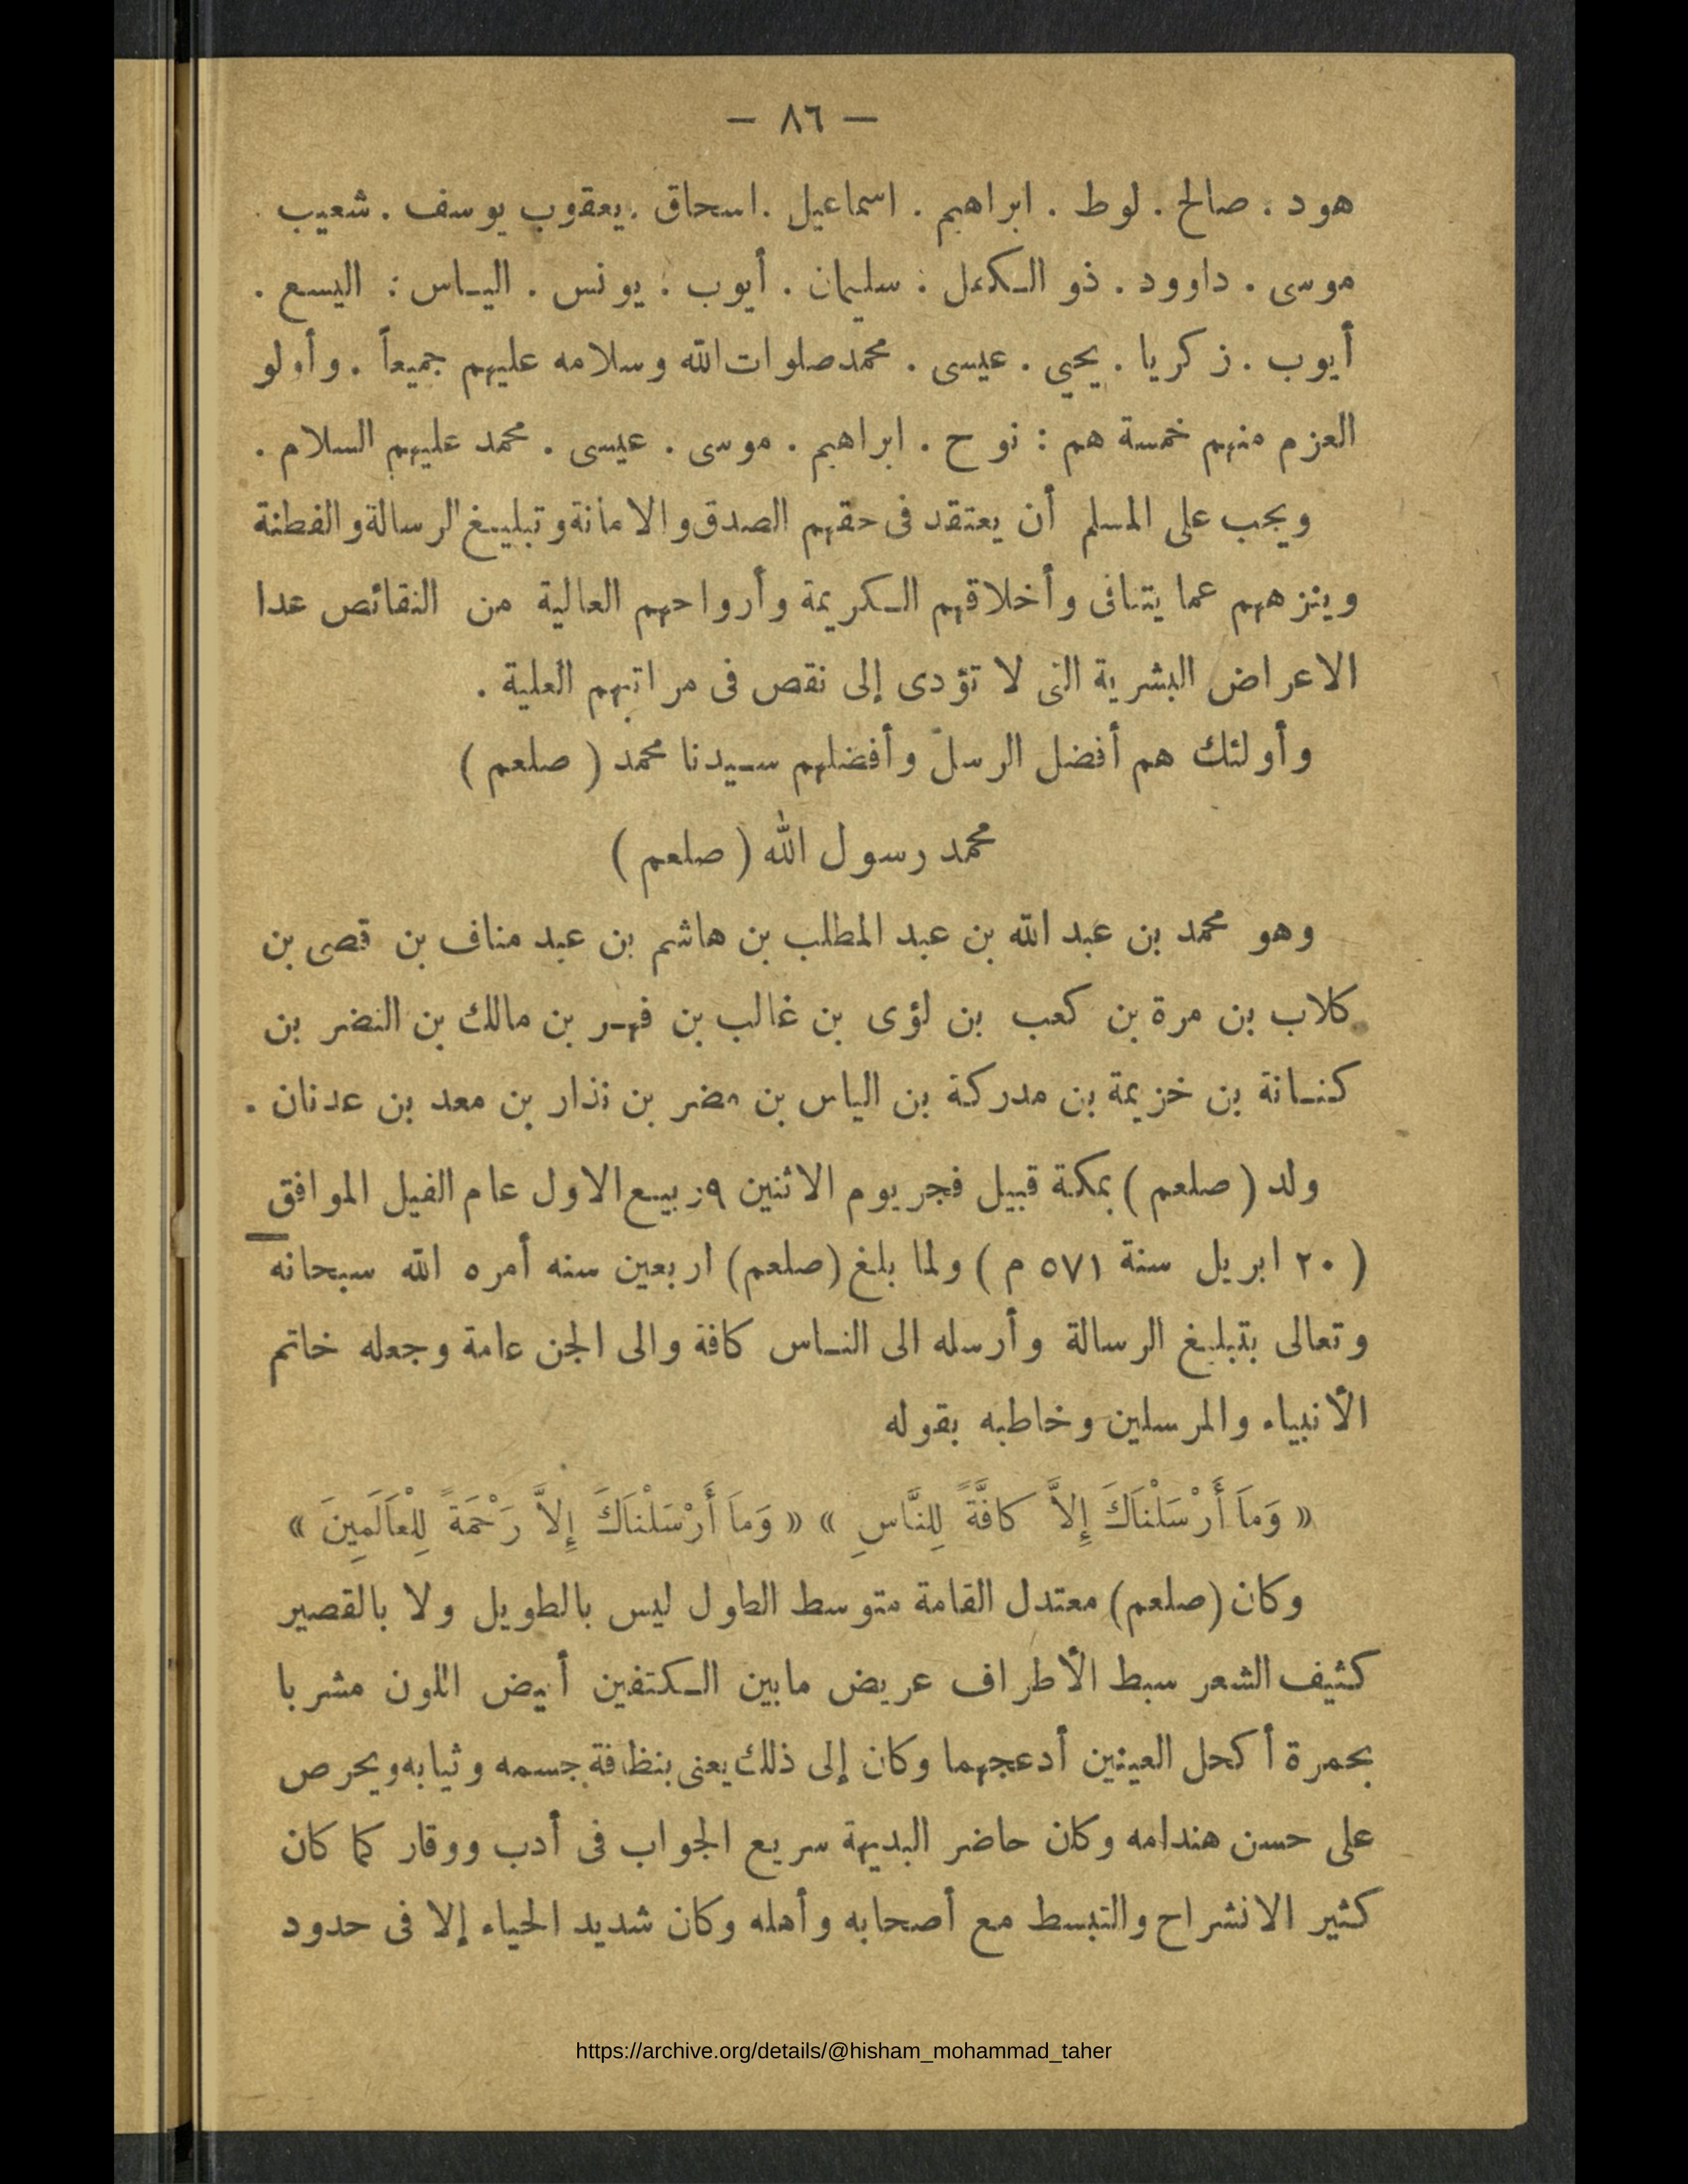 — ٨٦ —
هود . صالح . لوط . ابراهيم . اسماعيل . اسحاق . يعقوب يوسف . شعيب .
موسى . داوود . ذو الكفل : سليمان . أيوب . يونس . الياس : اليسع .
أيوب . زكريا . يحيي . عيسى . محمد صلوات الله وسلامه عليهم جميعاً . وأولو
العزم منهم خمسة هم : نوح . ابراهيم . موسى . عيسى . محمد عليهم السلام .
ويجب على المسلم أن يعتقد فى حقهم الصدق والامانة وتبليغ الرسالة والفطنة
وينزههم عما يتنافى وأخلاقهم الكريمة وأرواحهم العالية من النقائص عدا
الاعراض البشرية التى لا تؤدى إلى نقص فى مراتبهم العلية .
وأولئك هم أفضل الرسل وأفضلهم سيدنا محمد ( صلعم )
محمد رسول الله ( صلعم )
وهو محمد بن عبد الله بن عبد المطلب بن هاشم بن عبد مناف بن قصى بن
كلاب بن مرة بن كعب بن لؤى بن غالب بن فهر بن مالك بن النضر بن
كنانة بن خزيمة بن مدركة بن الياس بن مضر بن نذار بن معد بن عدنان .
ولد ( صلعم ) بمكة قبيل فجر يوم الاثنين ٩ ربيع الاول عام الفيل الموافق
( ٢٠ ابريل سنة ٥٧١ م ) ولما بلغ (صلعم) اربعين سنه أمره الله سبحانه
وتعالى بتبليغ الرسالة وأرسله الى الناس كافة والى الجن عامة وجعله خاتم
الأنبياء والمرسلين وخاطبه بقوله
« وَمَا أَرْسَلْنَاكَ إِلاَّ كافَّةً لِلنَّاسِ » « وَمَا أَرْسَلْنَاكَ إِلاَّ رَحْمَةً لِلْعَالَمِينَ »
وكان (صلعم) معتدل القامة متوسط الطول ليس بالطويل ولا بالقصير
كثيف الشعر سبط الأطراف عريض مابين الكتفين أبيض اللون مشربا
بحمرة أكحل العينين أدعجهما وكان إلى ذلك يعنى بنظافة جسمه وثيابه ويحرص
على حسن هندامه وكان حاضر البديهة سريع الجواب فى أدب ووقار كما كان
كثير الانشراح والتبسط مع أصحابه وأهله وكان شديد الحياء إلا فى حدود
https://archive.org/details/@hisham_mohammad_taher